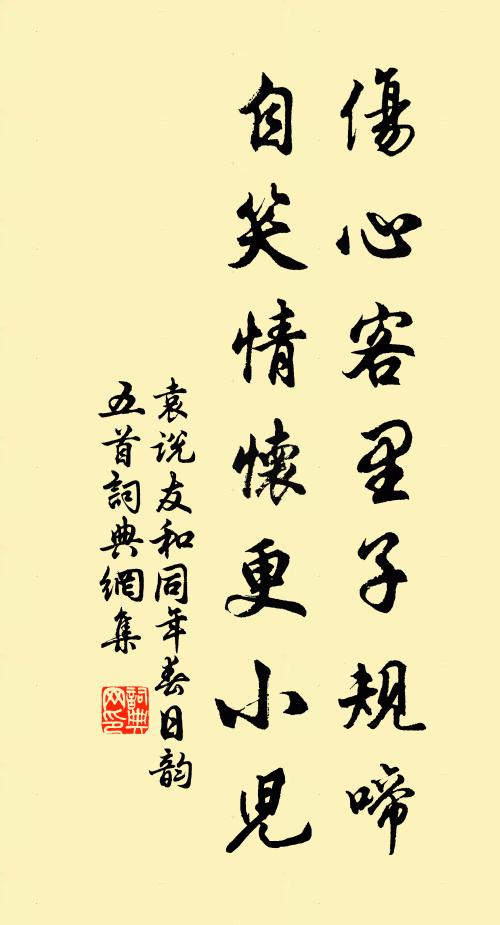 傷心客里子規啼
自笑情懷更小兒
袁説友和同年春日韵
五首詞典網集
詞典网印